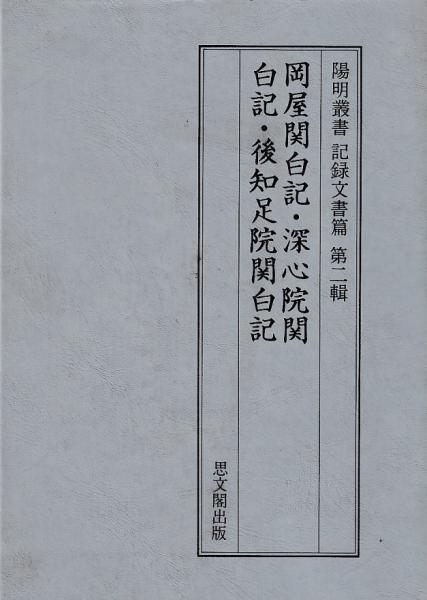 陽明叢書 記録文書篇 第二輯
岡屋関白記・深心院関
白記・後知足院関白記
思文閣出版